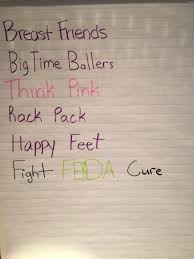 Breast Friends
Big Time Ballers
Think Pink
Rack Pack
Happy Feet
Fight FBDA Cure